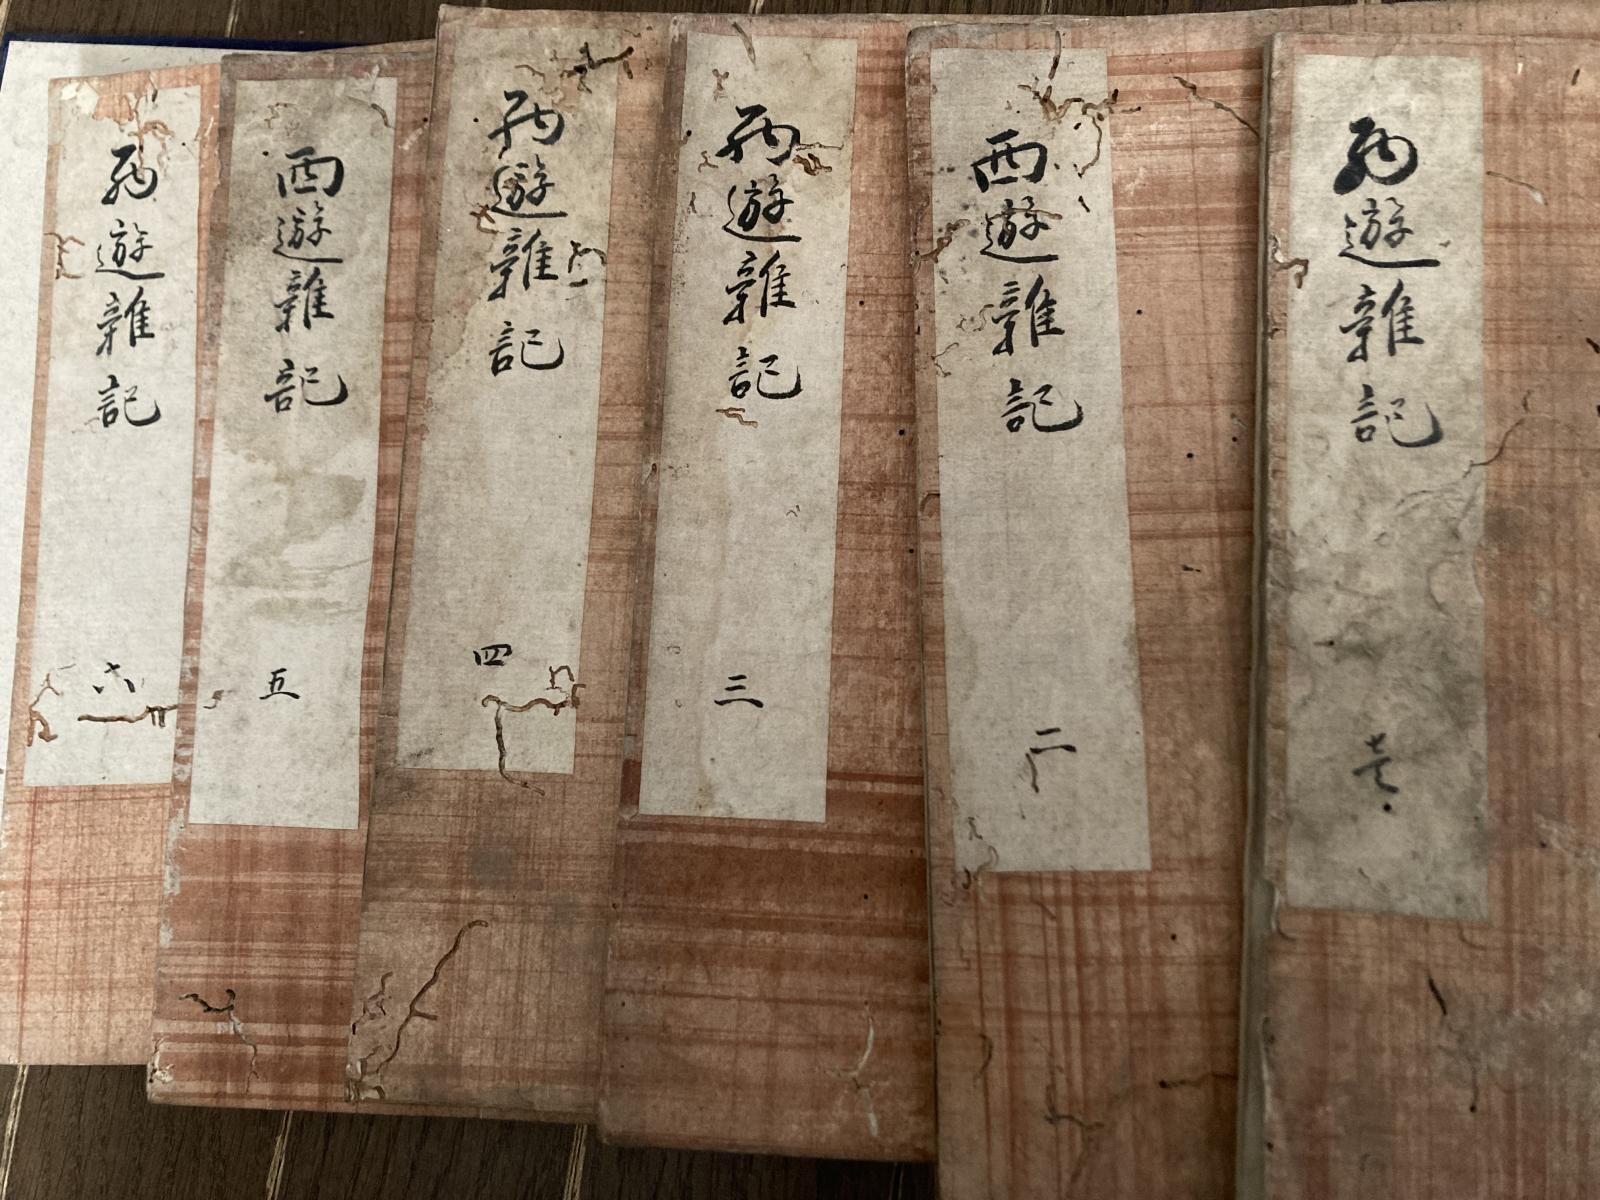 西遊雜記
壱
西遊雜記
二
西遊雜記
三
西遊雜記
四
西遊雜記
五
西遊雜記
六